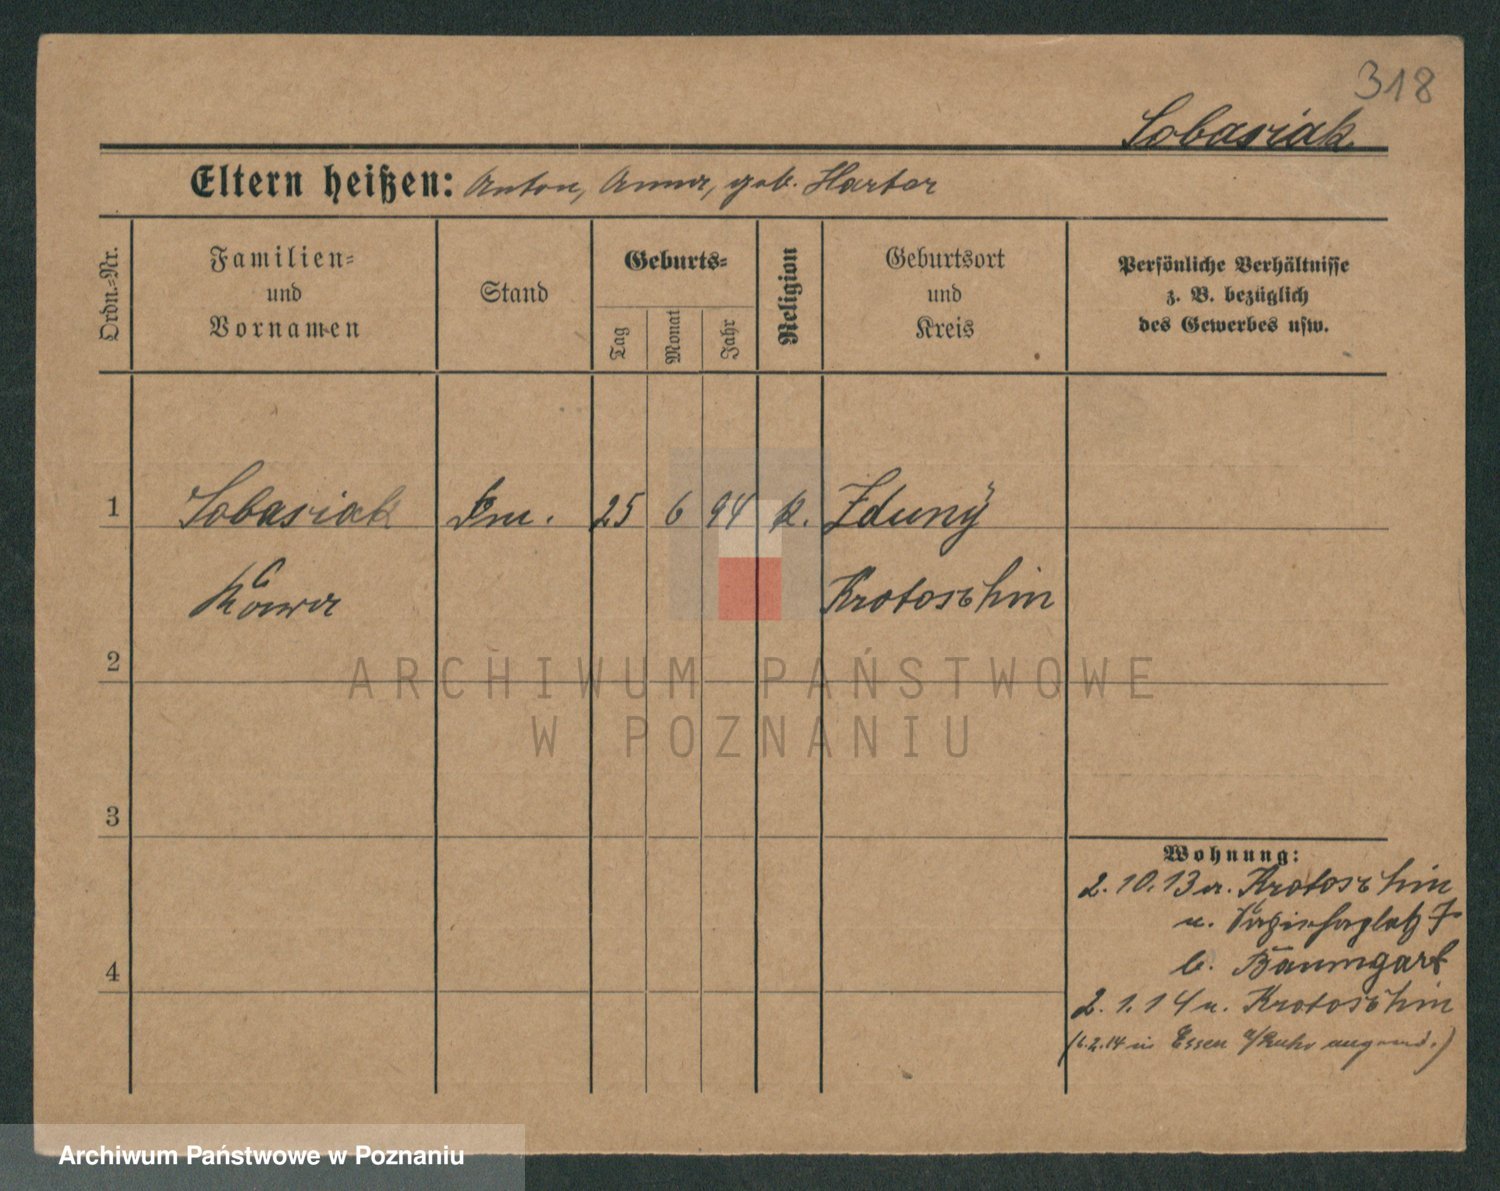 318
Sobasiak
Eltern heißen: Anton, Anna, geb. Harber
Ordn.-Nr.
Familien-
und
Vornamen
Stand
Geburts-
Tag
Monat
Jahr
Religion
Geburtsort
und
Kreis
Persönliche Verhältnisse
z. B. bezüglich
des Gewerbes usw.
1 Sobasiak 25 6 94 k. Zduny
Krotoschin
2
3
4
Wohnung:
2.10.13 a. Krotoschin
n. 7
b. Baumgart
2.1.14 n. Krotoschin
(6.2.14 in Essen a/Ruhr angemd.)
ARCHIWUM PAŃSTWOWE
W POZNANIU
Archiwum Państwowe w Poznaniu